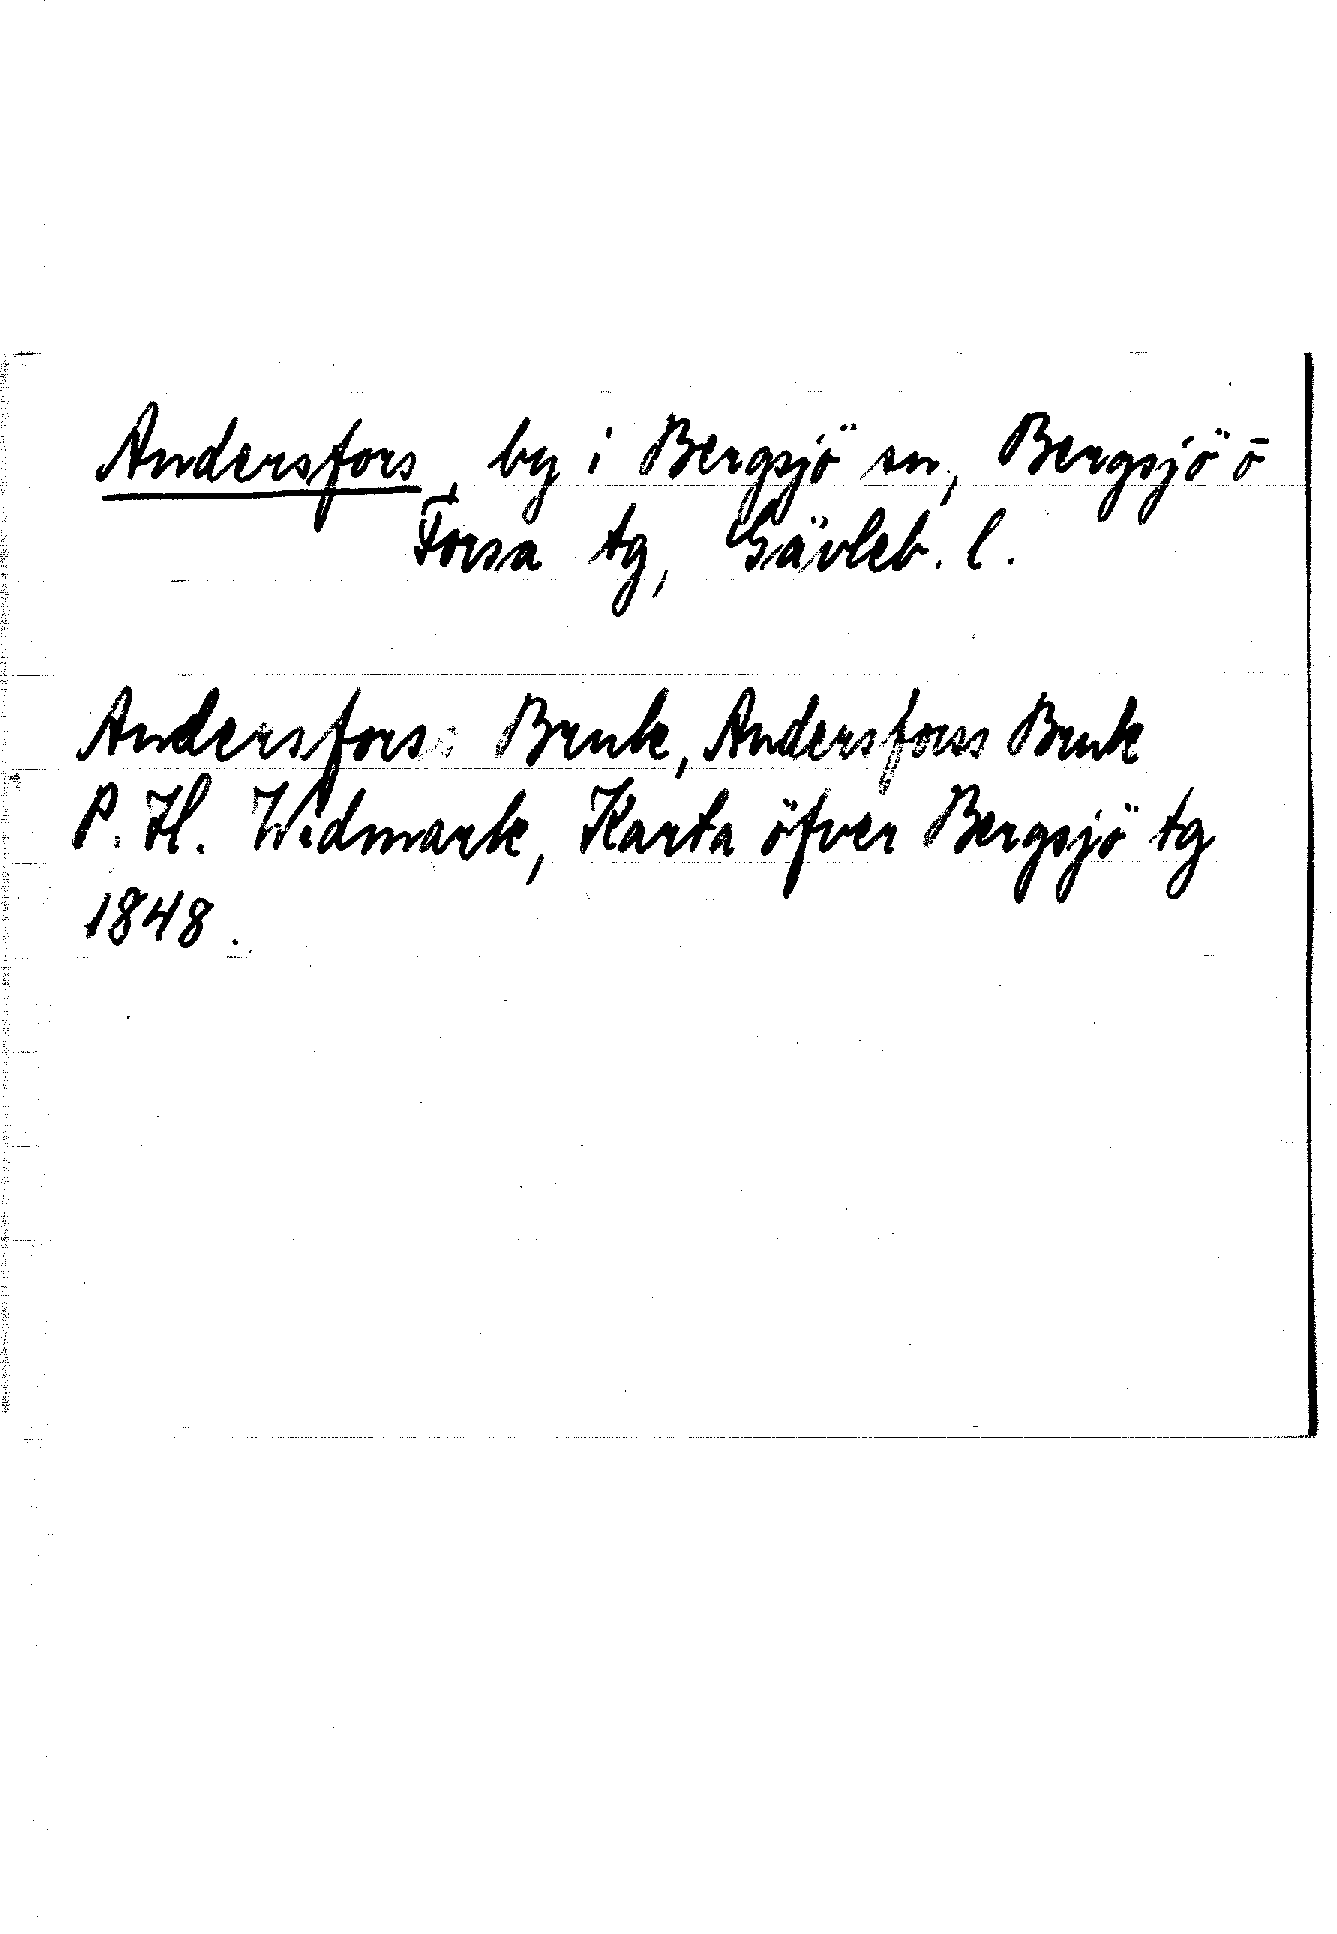 Andersfors, by i Bergsjö sn, Bergsjö o
Forsa tg, Gävleb. l.
Andersfors: Bruk, Andersforss Bruk
P. H. Widmark, Karta öfver Bergsjö tg
1848.